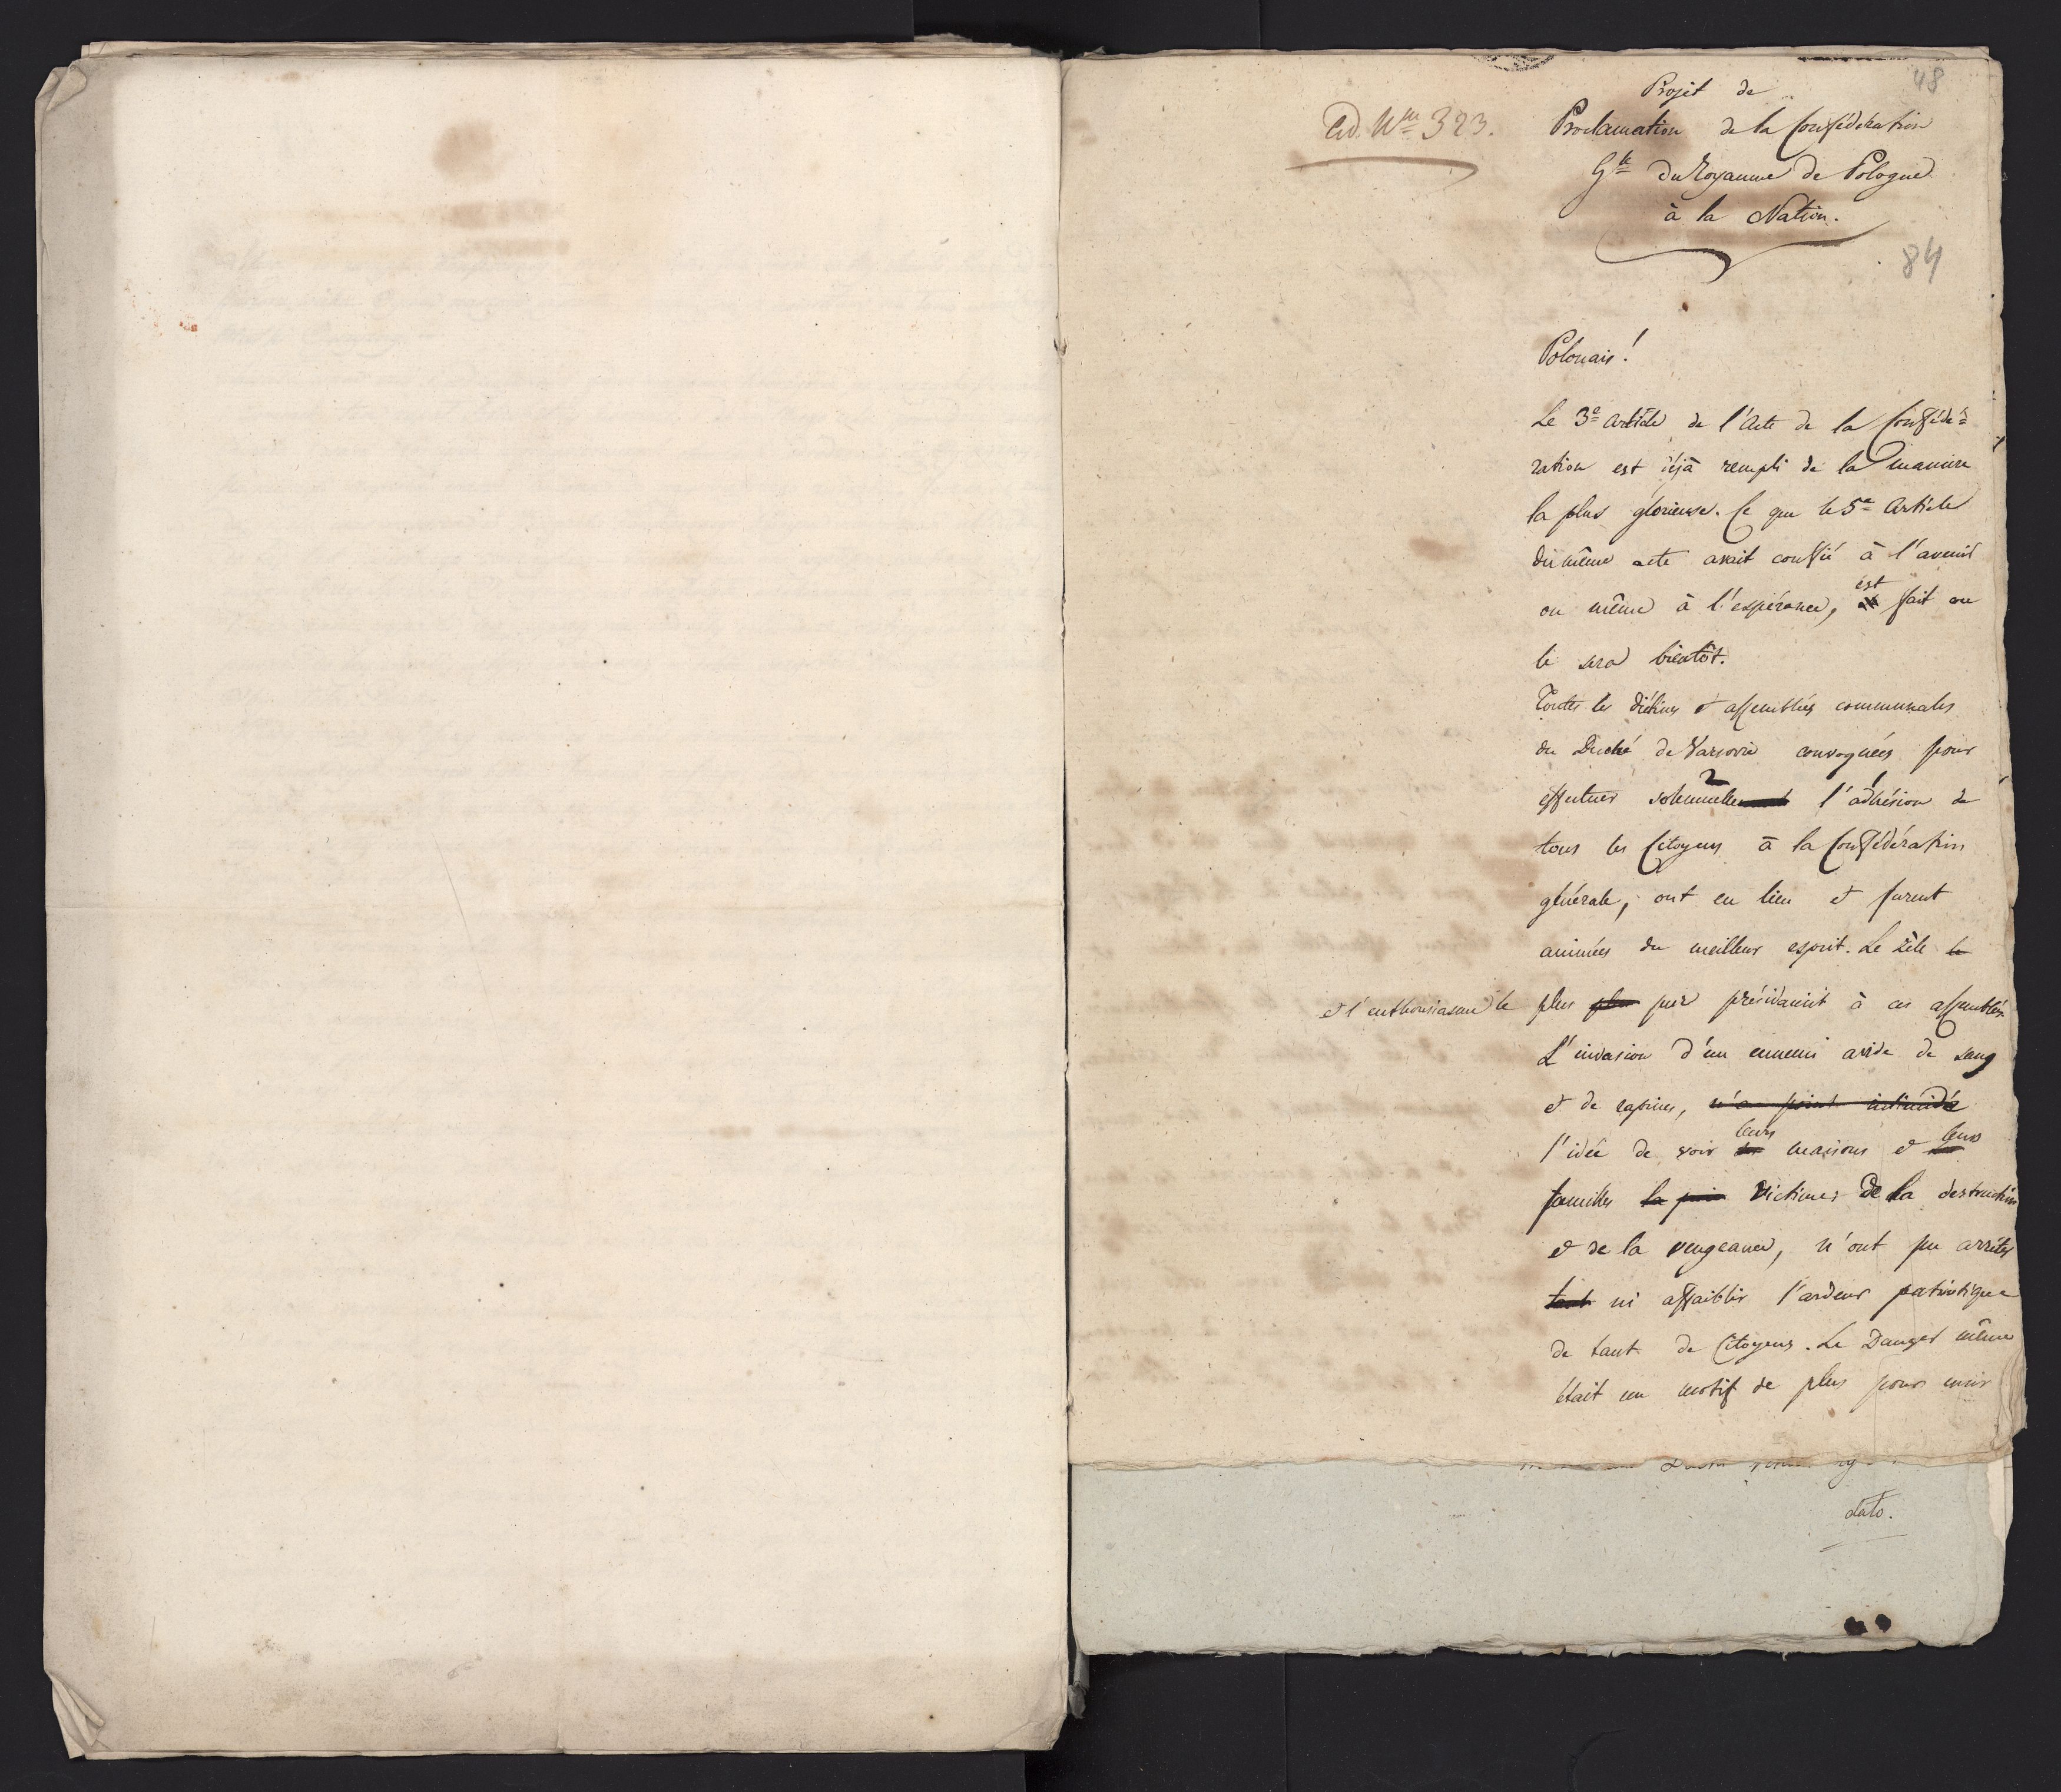 48
Projet de
Ad. Nrm 323. Proclamation de la Confédération
Gle du Royaume de Pologne
à la Nation.
84
Polonais!
Le 3e Article de l'Acte de la Confédé=
ration est déjà rempli de la maniere
la plus glorieuse. Ce que le 5e Article
du même acte avait confié à l'avenir
ou même à l'espérance, est fait ou
le sera bientôt.
Toutes les diétines et assemblées communales
du Duché de Varsovie convoquées pour
effectuer solemnellement l'adhésion de
tous les Citoyens à la Confédération
générale, ont eu lieu et furent
animées du meilleur esprit. Le zèle le
et l'enthousiasme le plus plus pur présidaient à ces assemblées
L'invasion d'un ennemi avide de sang
et de rapines, n'a point intimidé
l'idée de voir leurs maisons et leurs
familles la proie victimes de la destruction
et de la vengeance, n'ont pu arrêter
tant ni affaiblir l'ardeur patriotique
de tant de Citoyens. Le Danger même
était un motif de plus pour unir
dato.